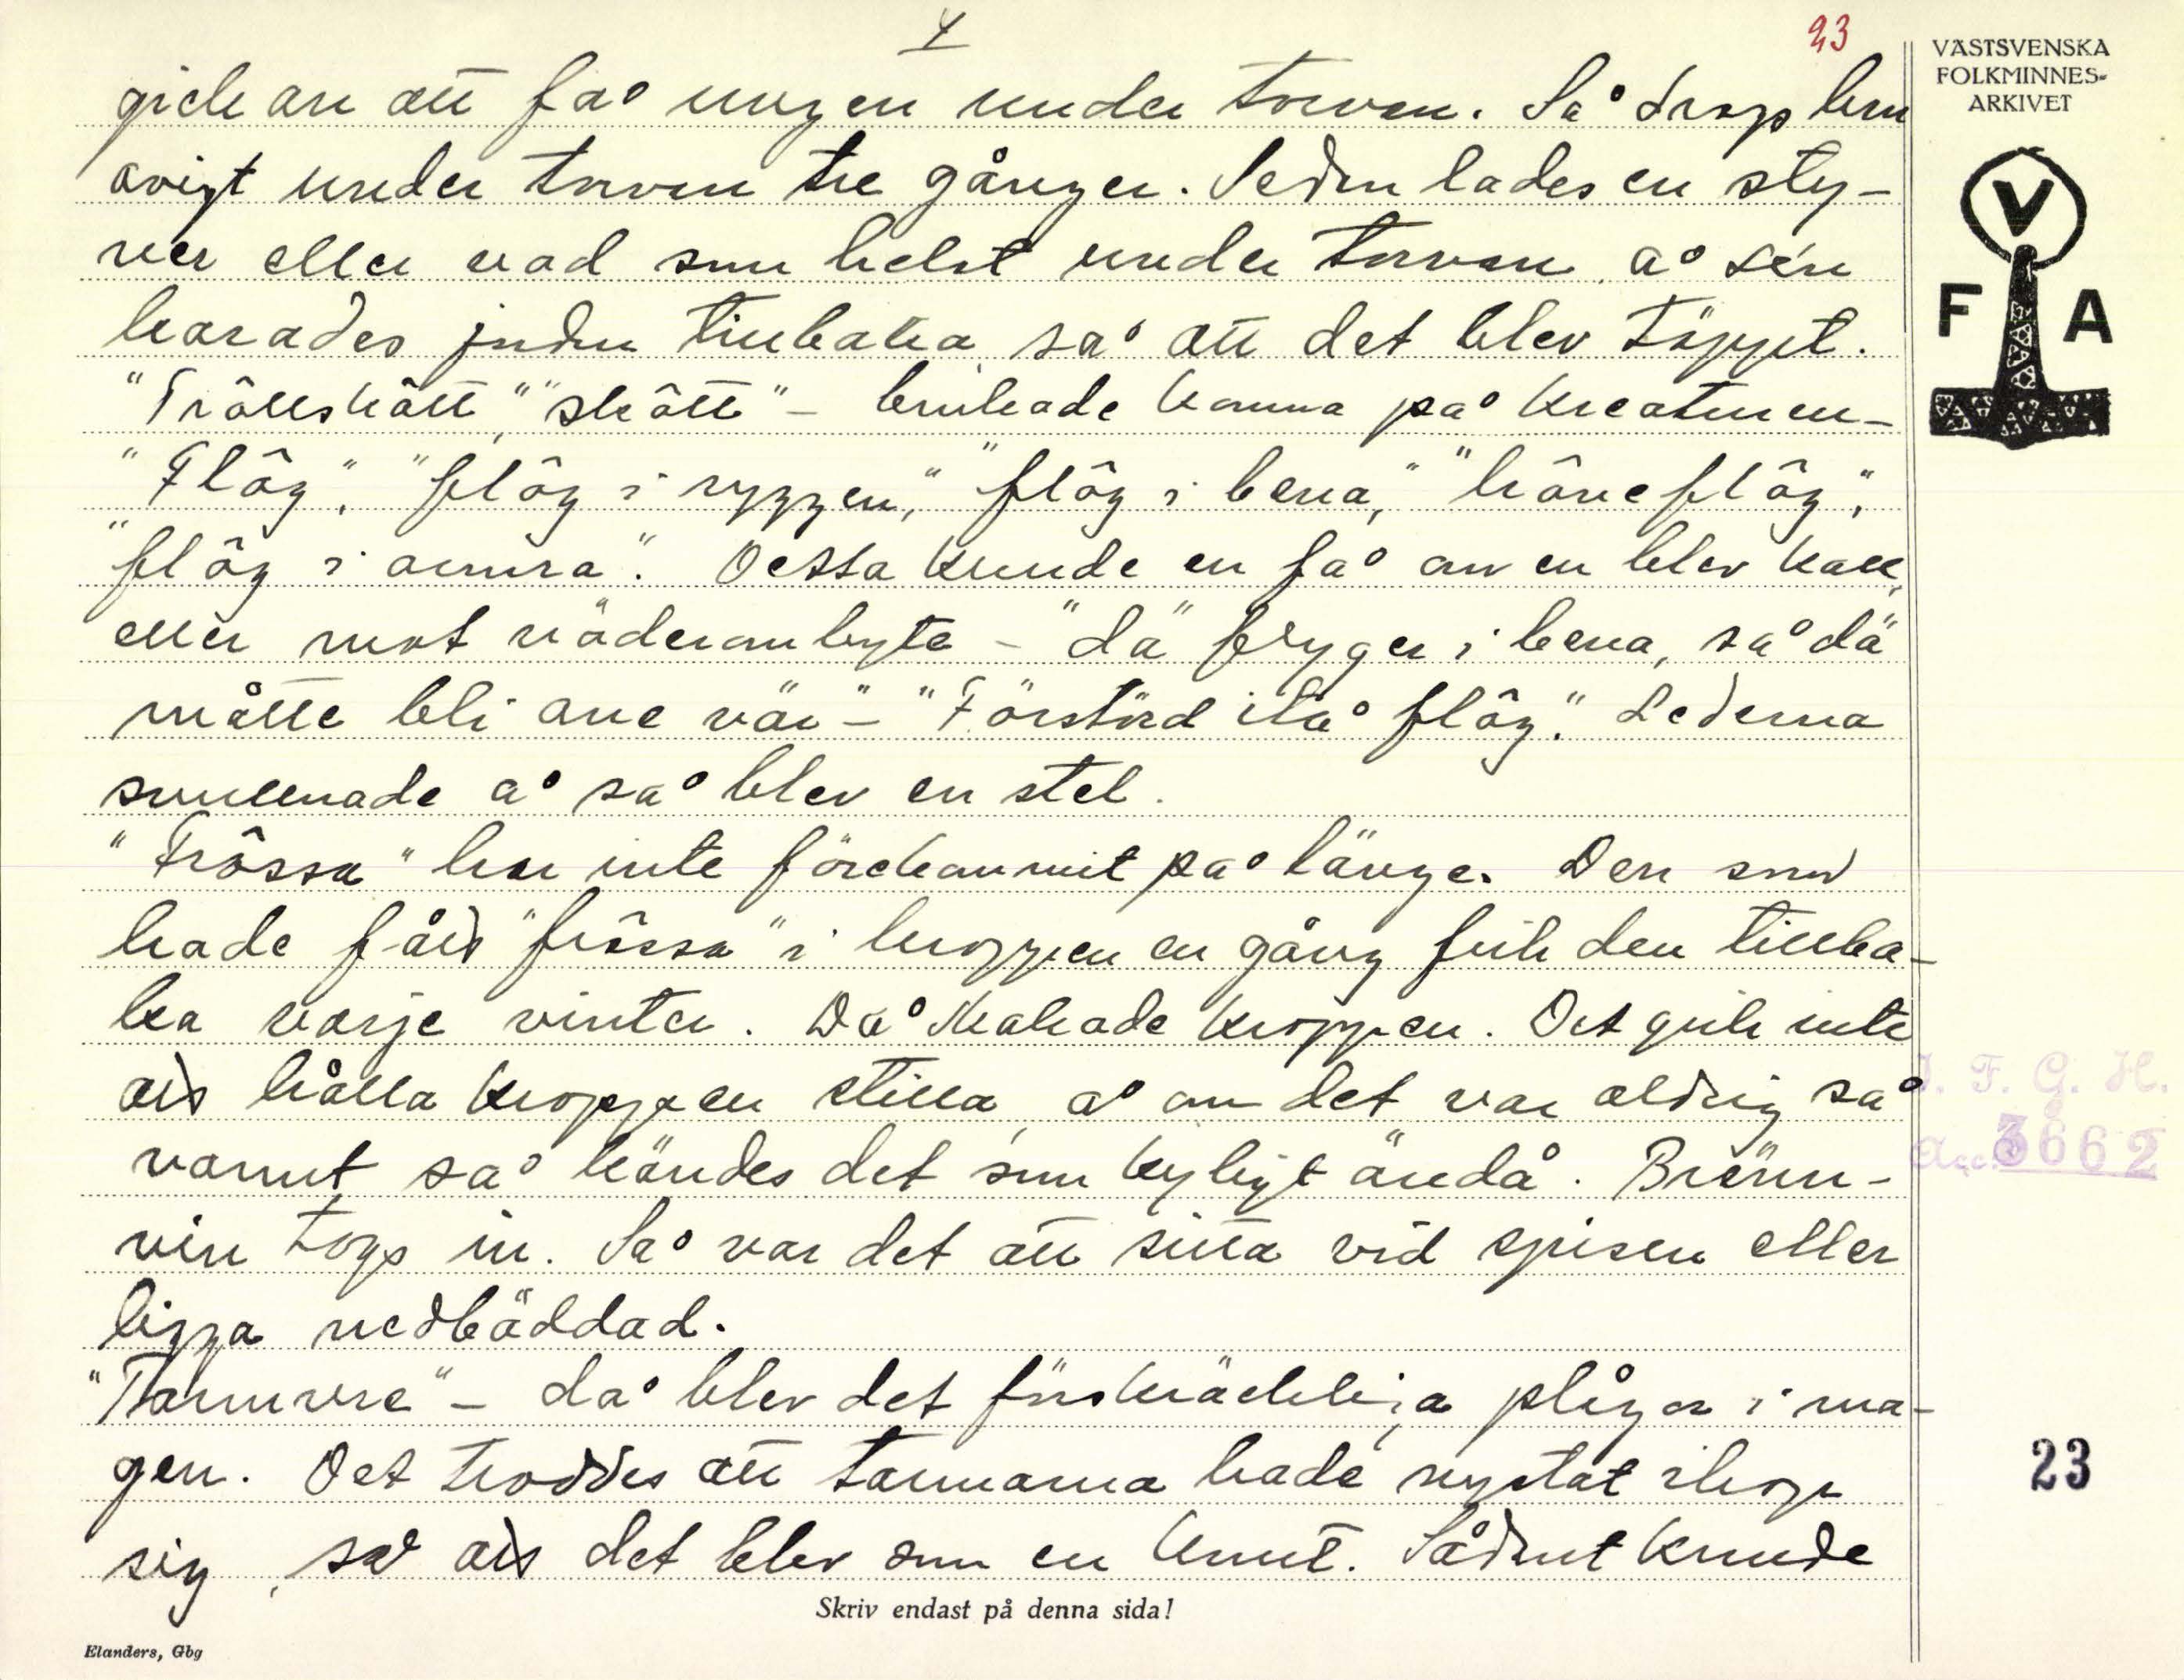 4
23
VÄSTSVENSKA
FOLKMINNES-
ARKIVET
V
F A
gick an att få ungen under torven. Så drogs hem
avigt under torven tre gånger. Sedan lades en sty-
ver eller vad som helst under torven å sén
karades jorden tillbaka så att det blev täppt.
"Trôllskôtt", "skôtt" - brukade komma på kreaturen -
"Flôg", "flôg i ryggen", "flôg i bena", "hôneflôg",
"flôg i armra". Dessa kunde en få om en blev kall,
eller mot väderombyte - "dä" flyger i bena, så dä
måtte bli ane vär" - "Förstörd itå flôg". Lederna
svullnade å så blev en stel.
"Frôssa" har inte förekommit på länge. Den som
hade fått "frôssa" i kroppen en gång fick den tillba-
ka varje vinter. Då skakade kroppen. Det gick inte
att hålla kroppen stilla å om det var aldrig så
varmt så kändes det som kyligt ändå. Bränn-
vin togs in. Så var det att sitta vid spisen eller
ligga nedbäddad.
"Tarmvre" - då blev det förskräckliga plågor i ma-
gen. Det troddes att tarmarna hade nystat ihop
sig, så att det blev som en knut. Sådant kunde
I. F. G. H.
Acc. 3662
23
Skriv endast på denna sida!
Elanders, Gbg